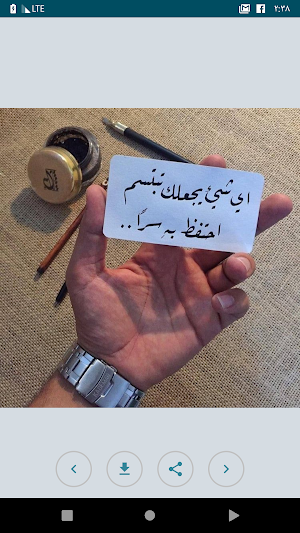 LTE ٢:٣٨
اي شيئ يجعلك تبتسم
احتفظ به سرًا..